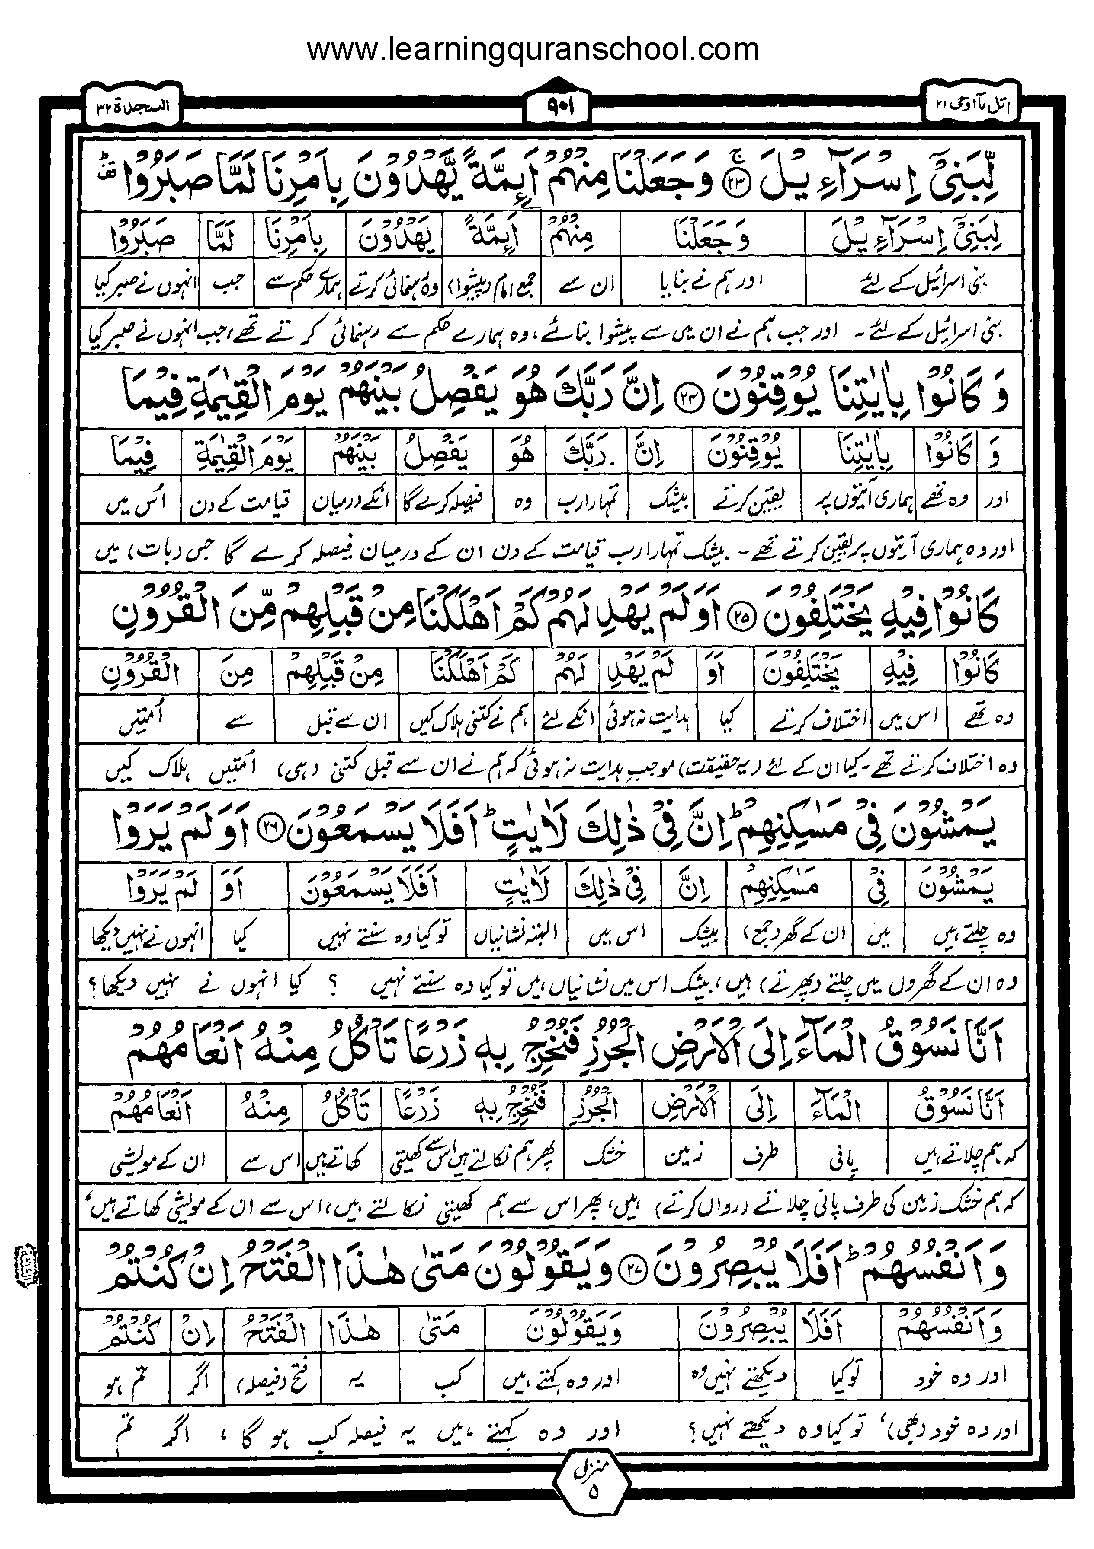 www.learningquranschool.com
اتل مآ اوحی ۲۱
۹۰۱
السجدۃ ۳۲
لِّبَنِیْۤ اِسْرَآءِیْلَ ﴿۲۳﴾ۚ وَ جَعَلْنَا مِنْهُمْ اَىِٕمَّةً یَّهْدُوْنَ بِاَمْرِنَا لَمَّا صَبَرُوْا
لِبَنِیْۤ اِسْرَآءِیْلَ وَ جَعَلْنَا مِنْهُمْ اَىِٕمَّةً یَهْدُوْنَ بِاَمْرِنَا لَمَّا صَبَرُوْا
بنی اسرائیل کے لئے اور ہم نے بنایا ان سے جمع امام (پیشوا) وہ رہنمائی کرتے ہمارے حکم سے جب انہوں نے صبر کیا
بنی اسرائیل کے لئے ۔ اور جب ہم نے ان میں سے پیشوا بنائے، وہ ہمارے حکم سے رہنمائی کرتے تھے، جب انہوں نے صبر کیا
وَ كَانُوْا بِاٰیٰتِنَا یُوْقِنُوْنَ ﴿۲۴﴾ اِنَّ رَبَّكَ هُوَ یَفْصِلُ بَیْنَهُمْ یَوْمَ الْقِیٰمَةِ فِیْمَا
وَ كَانُوْا بِاٰیٰتِنَا یُوْقِنُوْنَ اِنَّ رَبَّكَ هُوَ یَفْصِلُ بَیْنَهُمْ یَوْمَ الْقِیٰمَةِ فِیْمَا
اور وہ تھے ہماری آیتوں پر یقین کرتے بیشک تمہارا رب وہ فیصلہ کرے گا انکے درمیان قیامت کے دن اُس میں
اور وہ ہماری آیتوں پر یقین کرتے تھے ۔ بیشک تمہارا رب قیامت کے دن ان کے درمیان فیصلہ کرے گا جس (بات) میں
كَانُوْا فِیْهِ یَخْتَلِفُوْنَ ﴿۲۵﴾ اَوَ لَمْ یَهْدِ لَهُمْ كَمْ اَهْلَكْنَا مِنْ قَبْلِهِمْ مِّنَ الْقُرُوْنِ
كَانُوْا فِیْهِ یَخْتَلِفُوْنَ اَوَ لَمْ یَهْدِ لَهُمْ كَمْ اَهْلَكْنَا مِنْ قَبْلِهِمْ مِنَ الْقُرُوْنِ
وہ تھے اس میں اختلاف کرتے کیا ہدایت نہ ہوئی انکے لئے ہم نے کتنی ہلاک کیں ان سے قبل سے اُمتیں
وہ اختلاف کرتے تھے ۔ کیا ان کے لئے (یہ حقیقت) موجب ہدایت نہ ہوئی کہ ہم نے ان سے قبل کتنی (ہی) اُمتیں ہلاک کیں
یَمْشُوْنَ فِیْ مَسٰكِنِهِمْ ؕ اِنَّ فِیْ ذٰلِكَ لَاٰیٰتٍ ؕ اَفَلَا یَسْمَعُوْنَ ﴿۲۶﴾ اَوَ لَمْ یَرَوْا
یَمْشُوْنَ فِیْ مَسٰكِنِهِمْ اِنَّ فِیْ ذٰلِكَ لَاٰیٰتٍ اَفَلَا یَسْمَعُوْنَ اَوَ لَمْ یَرَوْا
وہ چلتے ہیں میں ان کے گھر (جمع) بیشک اس میں البتہ نشانیاں تو کیا وہ سنتے نہیں کیا انہوں نے نہیں دیکھا
وہ ان کے گھروں میں چلتے (پھرتے) ہیں، بیشک اس میں نشانیاں ہیں تو کیا وہ سنتے نہیں ؟ کیا انہوں نے نہیں دیکھا؟
اَنَّا نَسُوْقُ الْمَآءَ اِلَی الْاَرْضِ الْجُرُزِ فَنُخْرِجُ بِهٖ زَرْعًا تَاْكُلُ مِنْهُ اَنْعَامُهُمْ
اَنَّا نَسُوْقُ الْمَآءَ اِلَی الْاَرْضِ الْجُرُزِ فَنُخْرِجُ بِهٖ زَرْعًا تَاْكُلُ مِنْهُ اَنْعَامُهُمْ
کہ ہم چلاتے ہیں پانی طرف زمین خشک پھر ہم نکالتے ہیں اس سے کھیتی کھاتے ہیں اس سے ان کے مویشی
کہ ہم خشک زمین کی طرف پانی چلاتے (رواں کرتے) ہیں، پھر اس سے ہم کھیتی نکالتے ہیں، اس سے ان کے مویشی کھاتے ہیں،
وَ اَنْفُسُهُمْ ؕ اَفَلَا یُبْصِرُوْنَ ﴿۲۷﴾ وَ یَقُوْلُوْنَ مَتٰی هٰذَا الْفَتْحُ اِنْ كُنْتُمْ
وَ اَنْفُسُهُمْ اَفَلَا یُبْصِرُوْنَ وَ یَقُوْلُوْنَ مَتٰی هٰذَا الْفَتْحُ اِنْ كُنْتُمْ
اور وہ خود تو کیا دیکھتے نہیں وہ اور وہ کہتے ہیں کب یہ فتح (فیصلہ) اگر تم ہو
اور وہ خود (بھی)، تو کیا وہ دیکھتے نہیں؟ اور وہ کہتے ہیں یہ فیصلہ کب ہو گا، اگر تم
منزل
۵